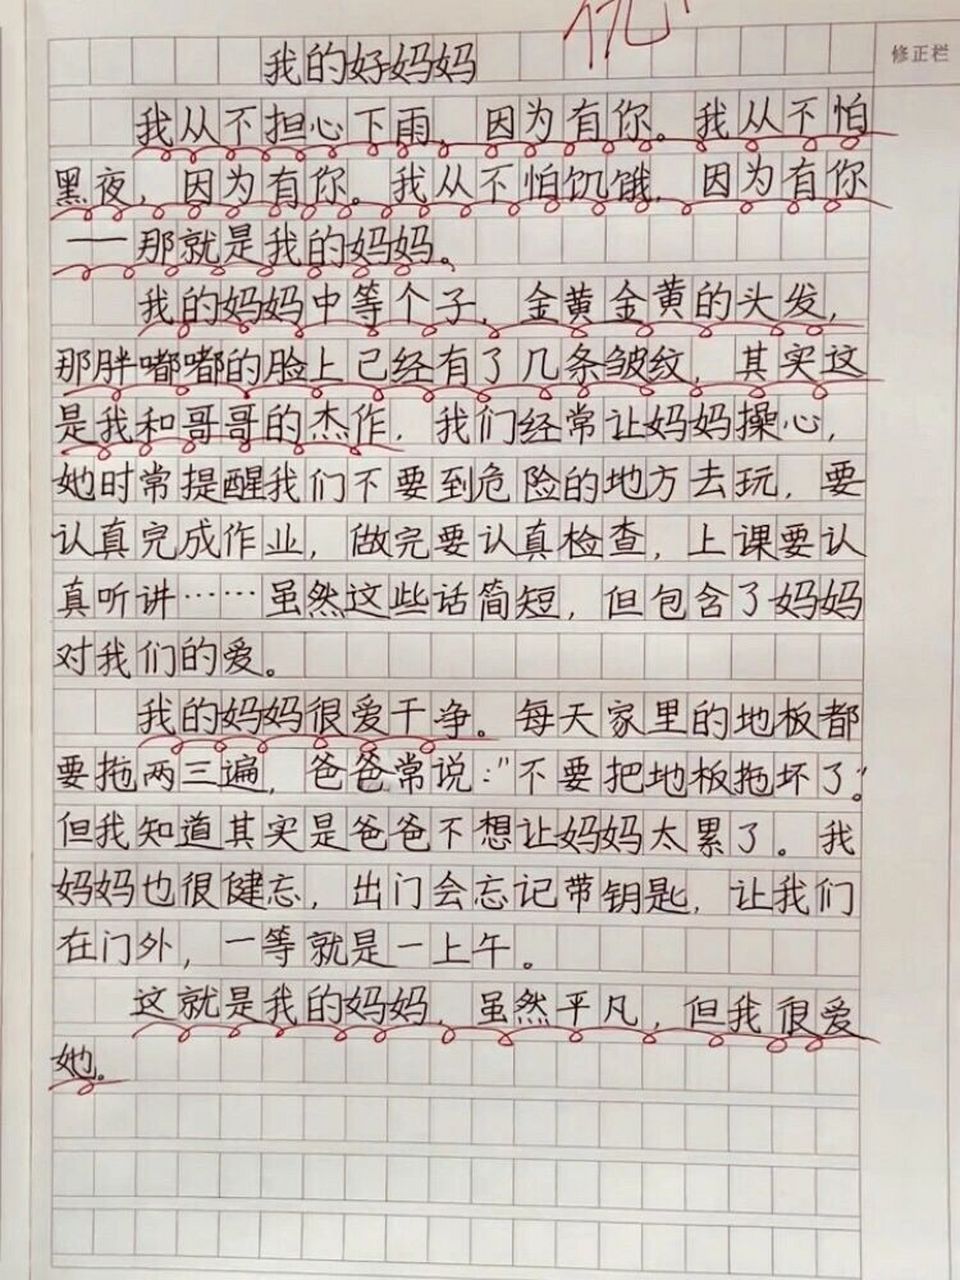 优
修正栏
我的好妈妈
我从不担心下雨，因为有你。我从不怕
黑夜，因为有你。我从不怕饥饿，因为有你
——那就是我的妈妈。
我的妈妈中等个子，金黄金黄的头发，
那胖嘟嘟的脸上已经有了几条皱纹，其实这
是我和哥哥的杰作，我们经常让妈妈操心，
她时常提醒我们不要到危险的地方去玩，要
认真完成作业，做完要认真检查，上课要认
真听讲……虽然这些话简短，但包含了妈妈
对我们的爱。
我的妈妈很爱干净。每天家里的地板都
要拖两三遍，爸爸常说："不要把地板拖坏了。"
但我知道其实是爸爸不想让妈妈太累了。我
妈妈也很健忘，出门会忘记带钥匙，让我们
在门外，一等就是一上午。
这就是我的妈妈，虽然平凡，但我很爱
她。